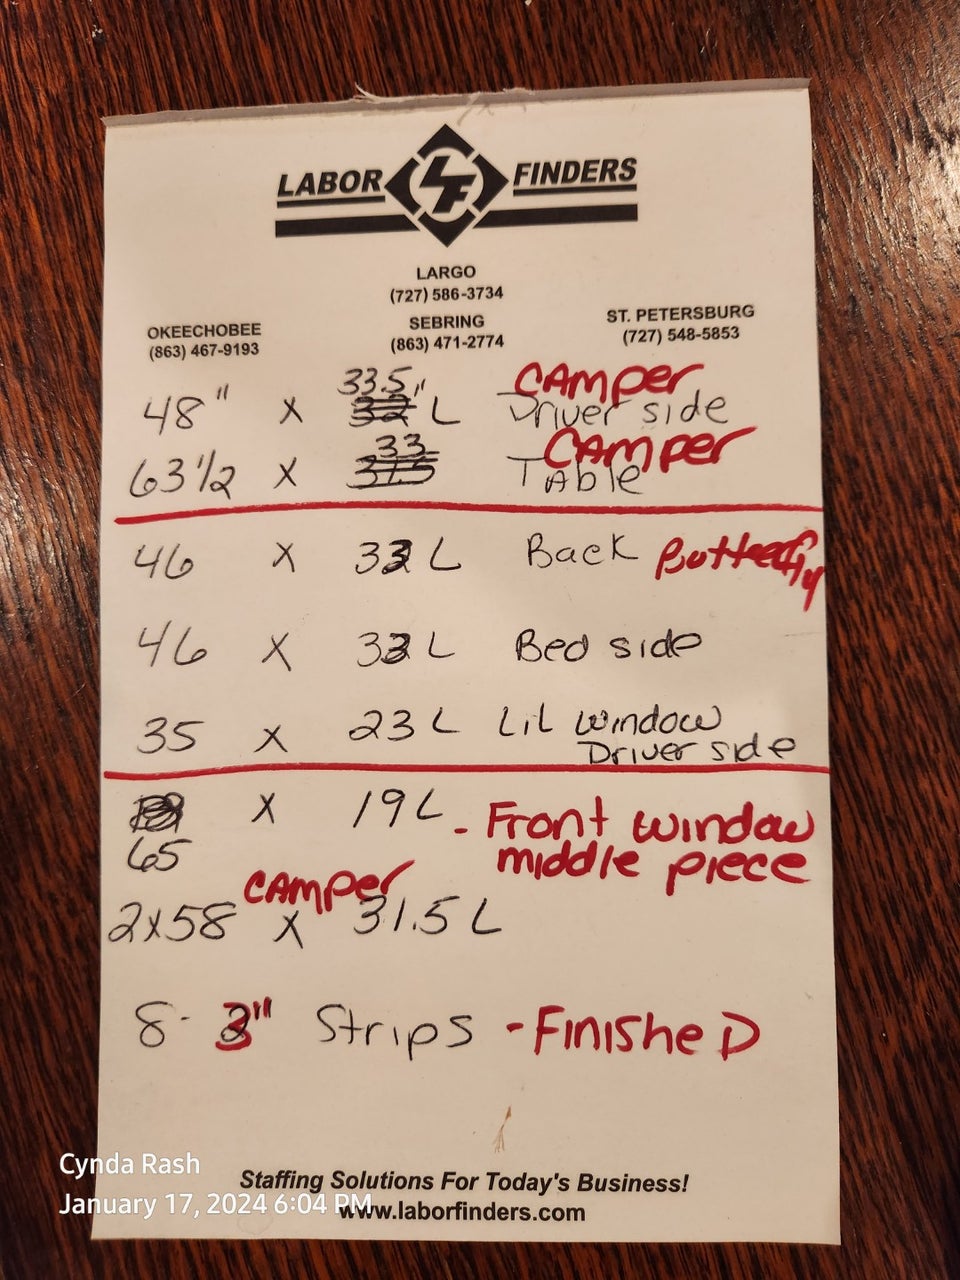 LABOR LF FINDERS
LARGO
(727) 586-3734
OKEECHOBEE
(863) 467-9193
SEBRING
(863) 471-2774
ST. PETERSBURG
(727) 548-5853
33.5" CAMPER
48" x 32 L Driver side
33 CAMPER
63 1/2 x 31.5 Table
46 x 33 L Back Butterfly
46 x 33 L Bed side
35 x 23 L Lil window
Driver side
x 19 L - Front window
65 middle piece
CAMPER
2x58 x 31.5 L
8- 3" Strips - FinisheD
Staffing Solutions For Today's Business!
www.laborfinders.com
Cynda Rash
January 17, 2024 6:04 PM